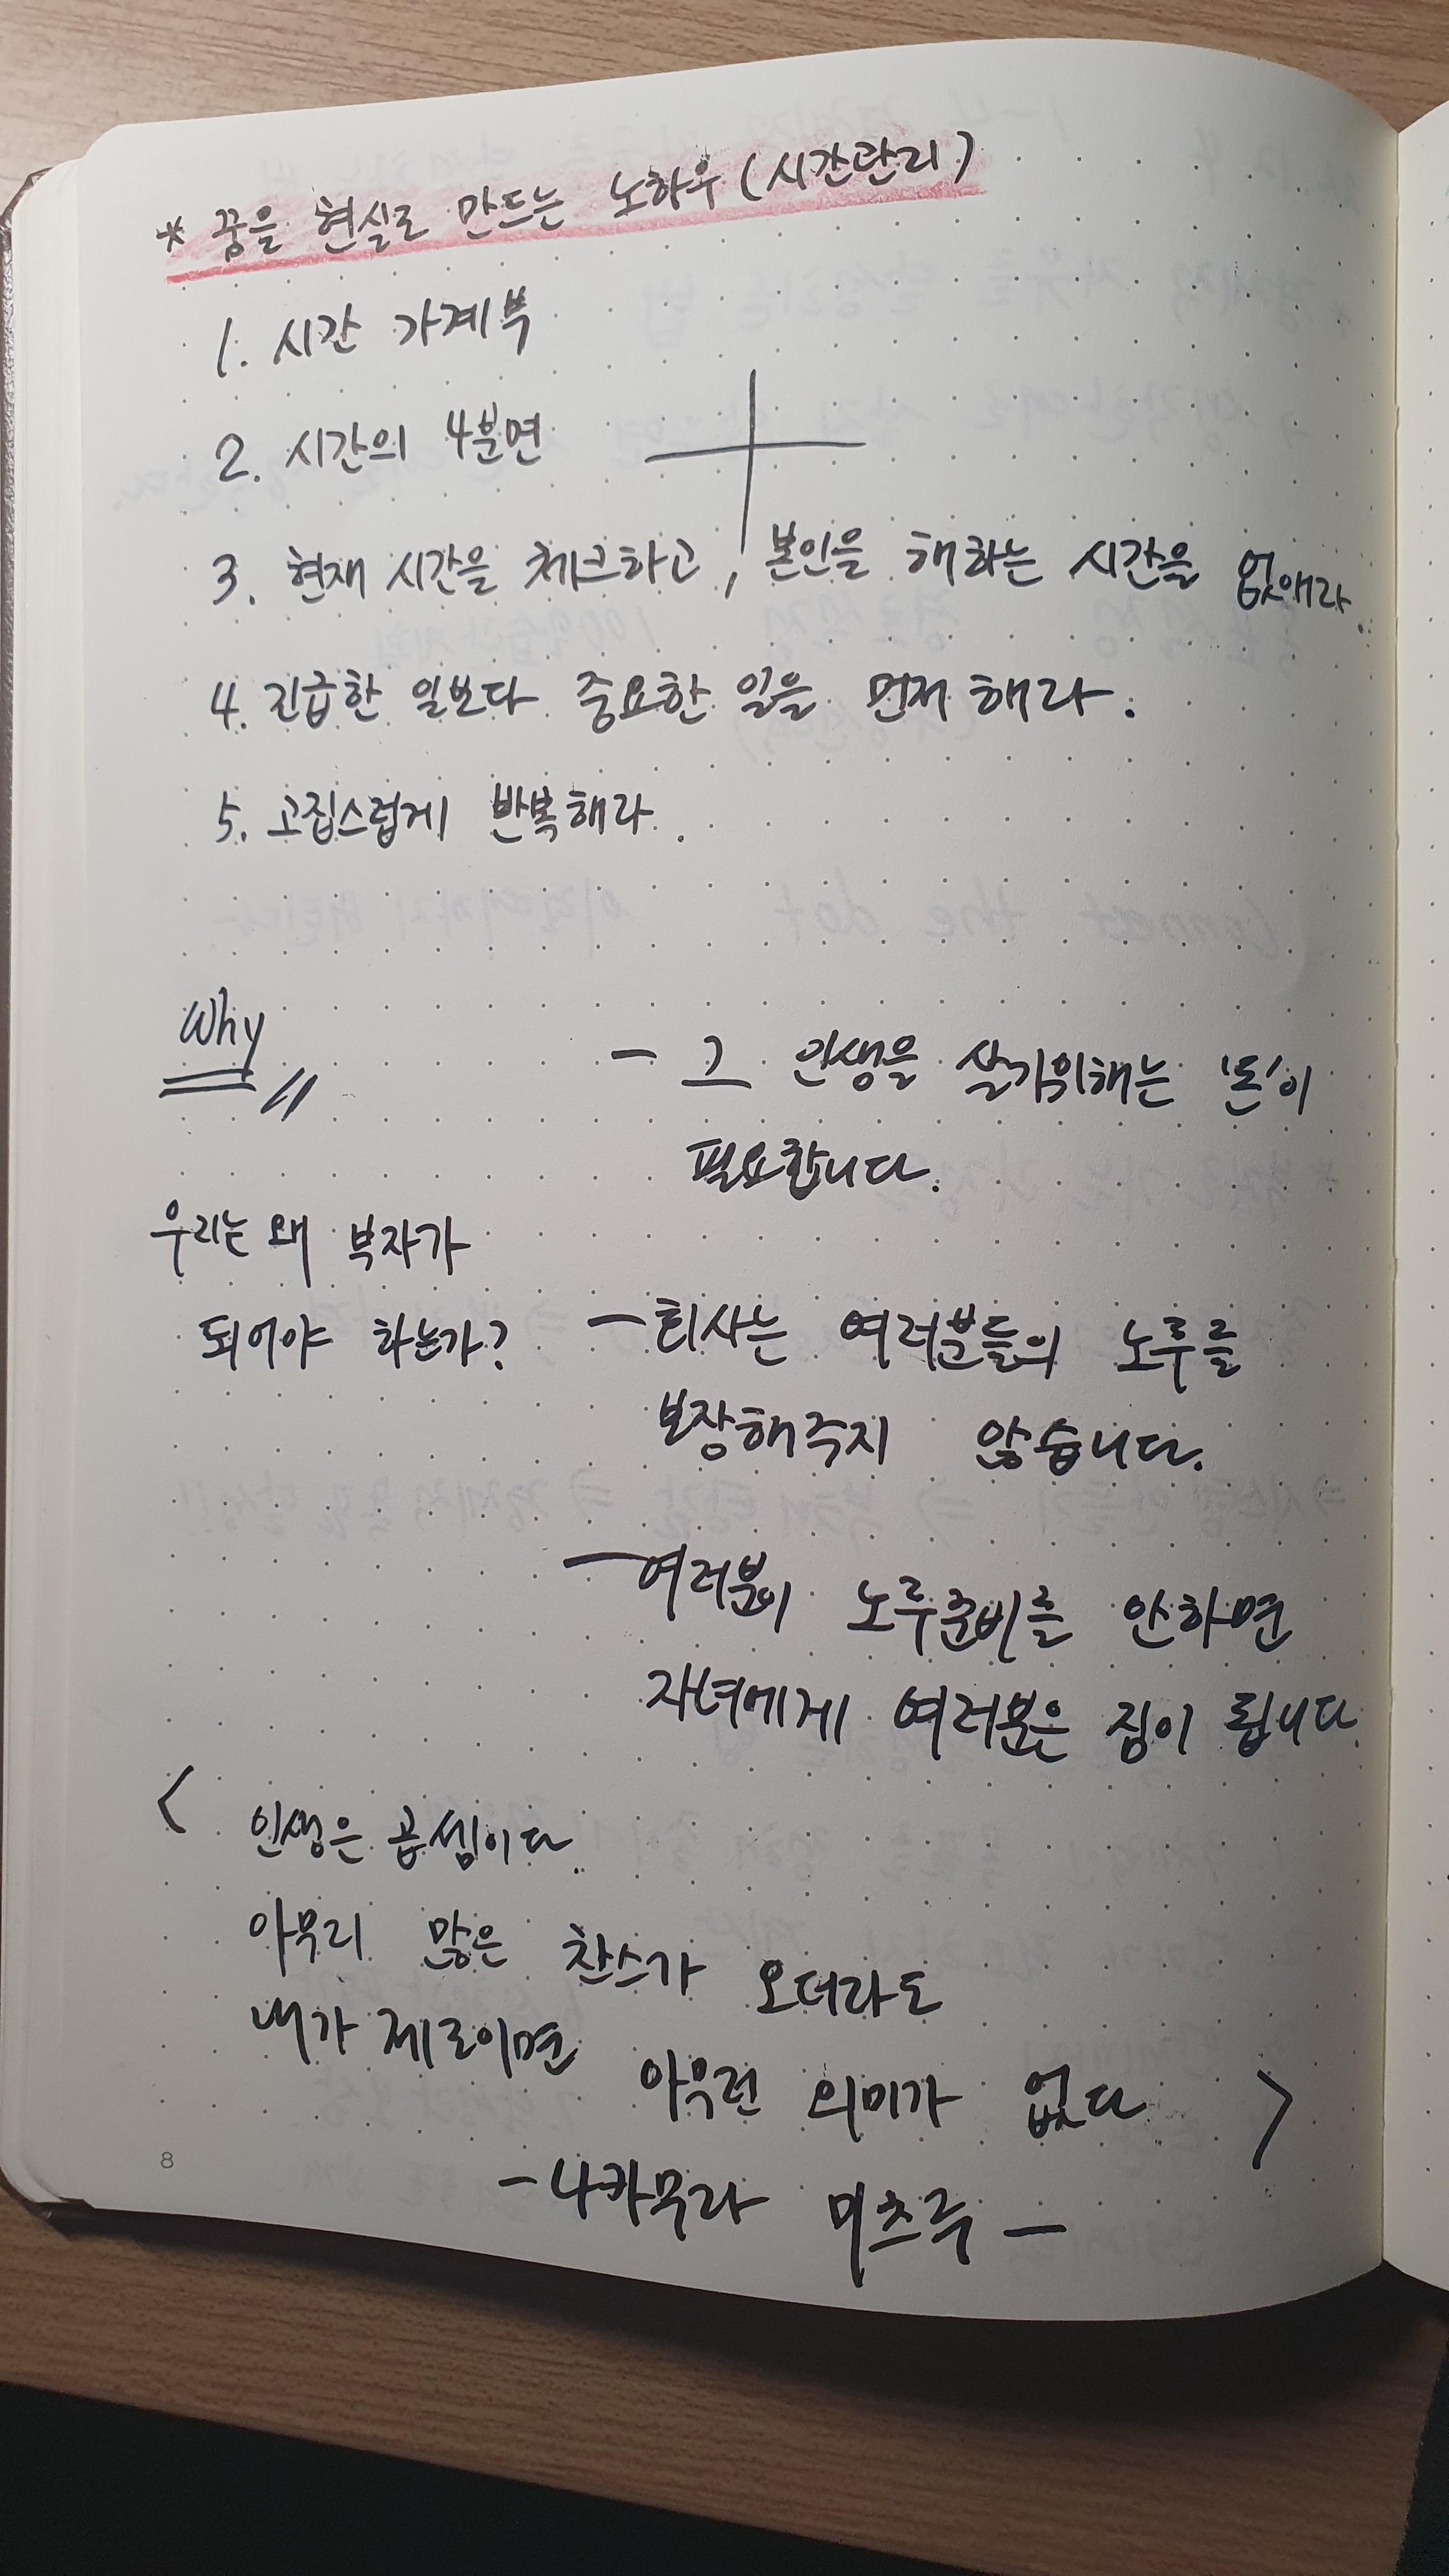 * 꿈을 현실로 만드는 노하우 (시간관리)
1. 시간 가계부
2. 시간의 4분면
3. 현재 시간을 체크하고, 본인을 해하는 시간을 없애라.
4. 긴급한 일보다 중요한 일을 먼저 해라.
5. 고집스럽게 반복해라.
Why
우리는 왜 부자가
되어야 하는가?
- 그 인생을 살기위해는 '돈'이
필요합니다.
- 회사는 여러분들의 노후를
보장해주지 않습니다.
- 여러분이 노후준비를 안하면
자녀에게 여러분은 짐이 됩니다.
< 인생은 곱셈이다.
아무리 많은 찬스가 오더라도
내가 제로이면 아무런 의미가 없다 >
- 나카무라 미츠루 -
8